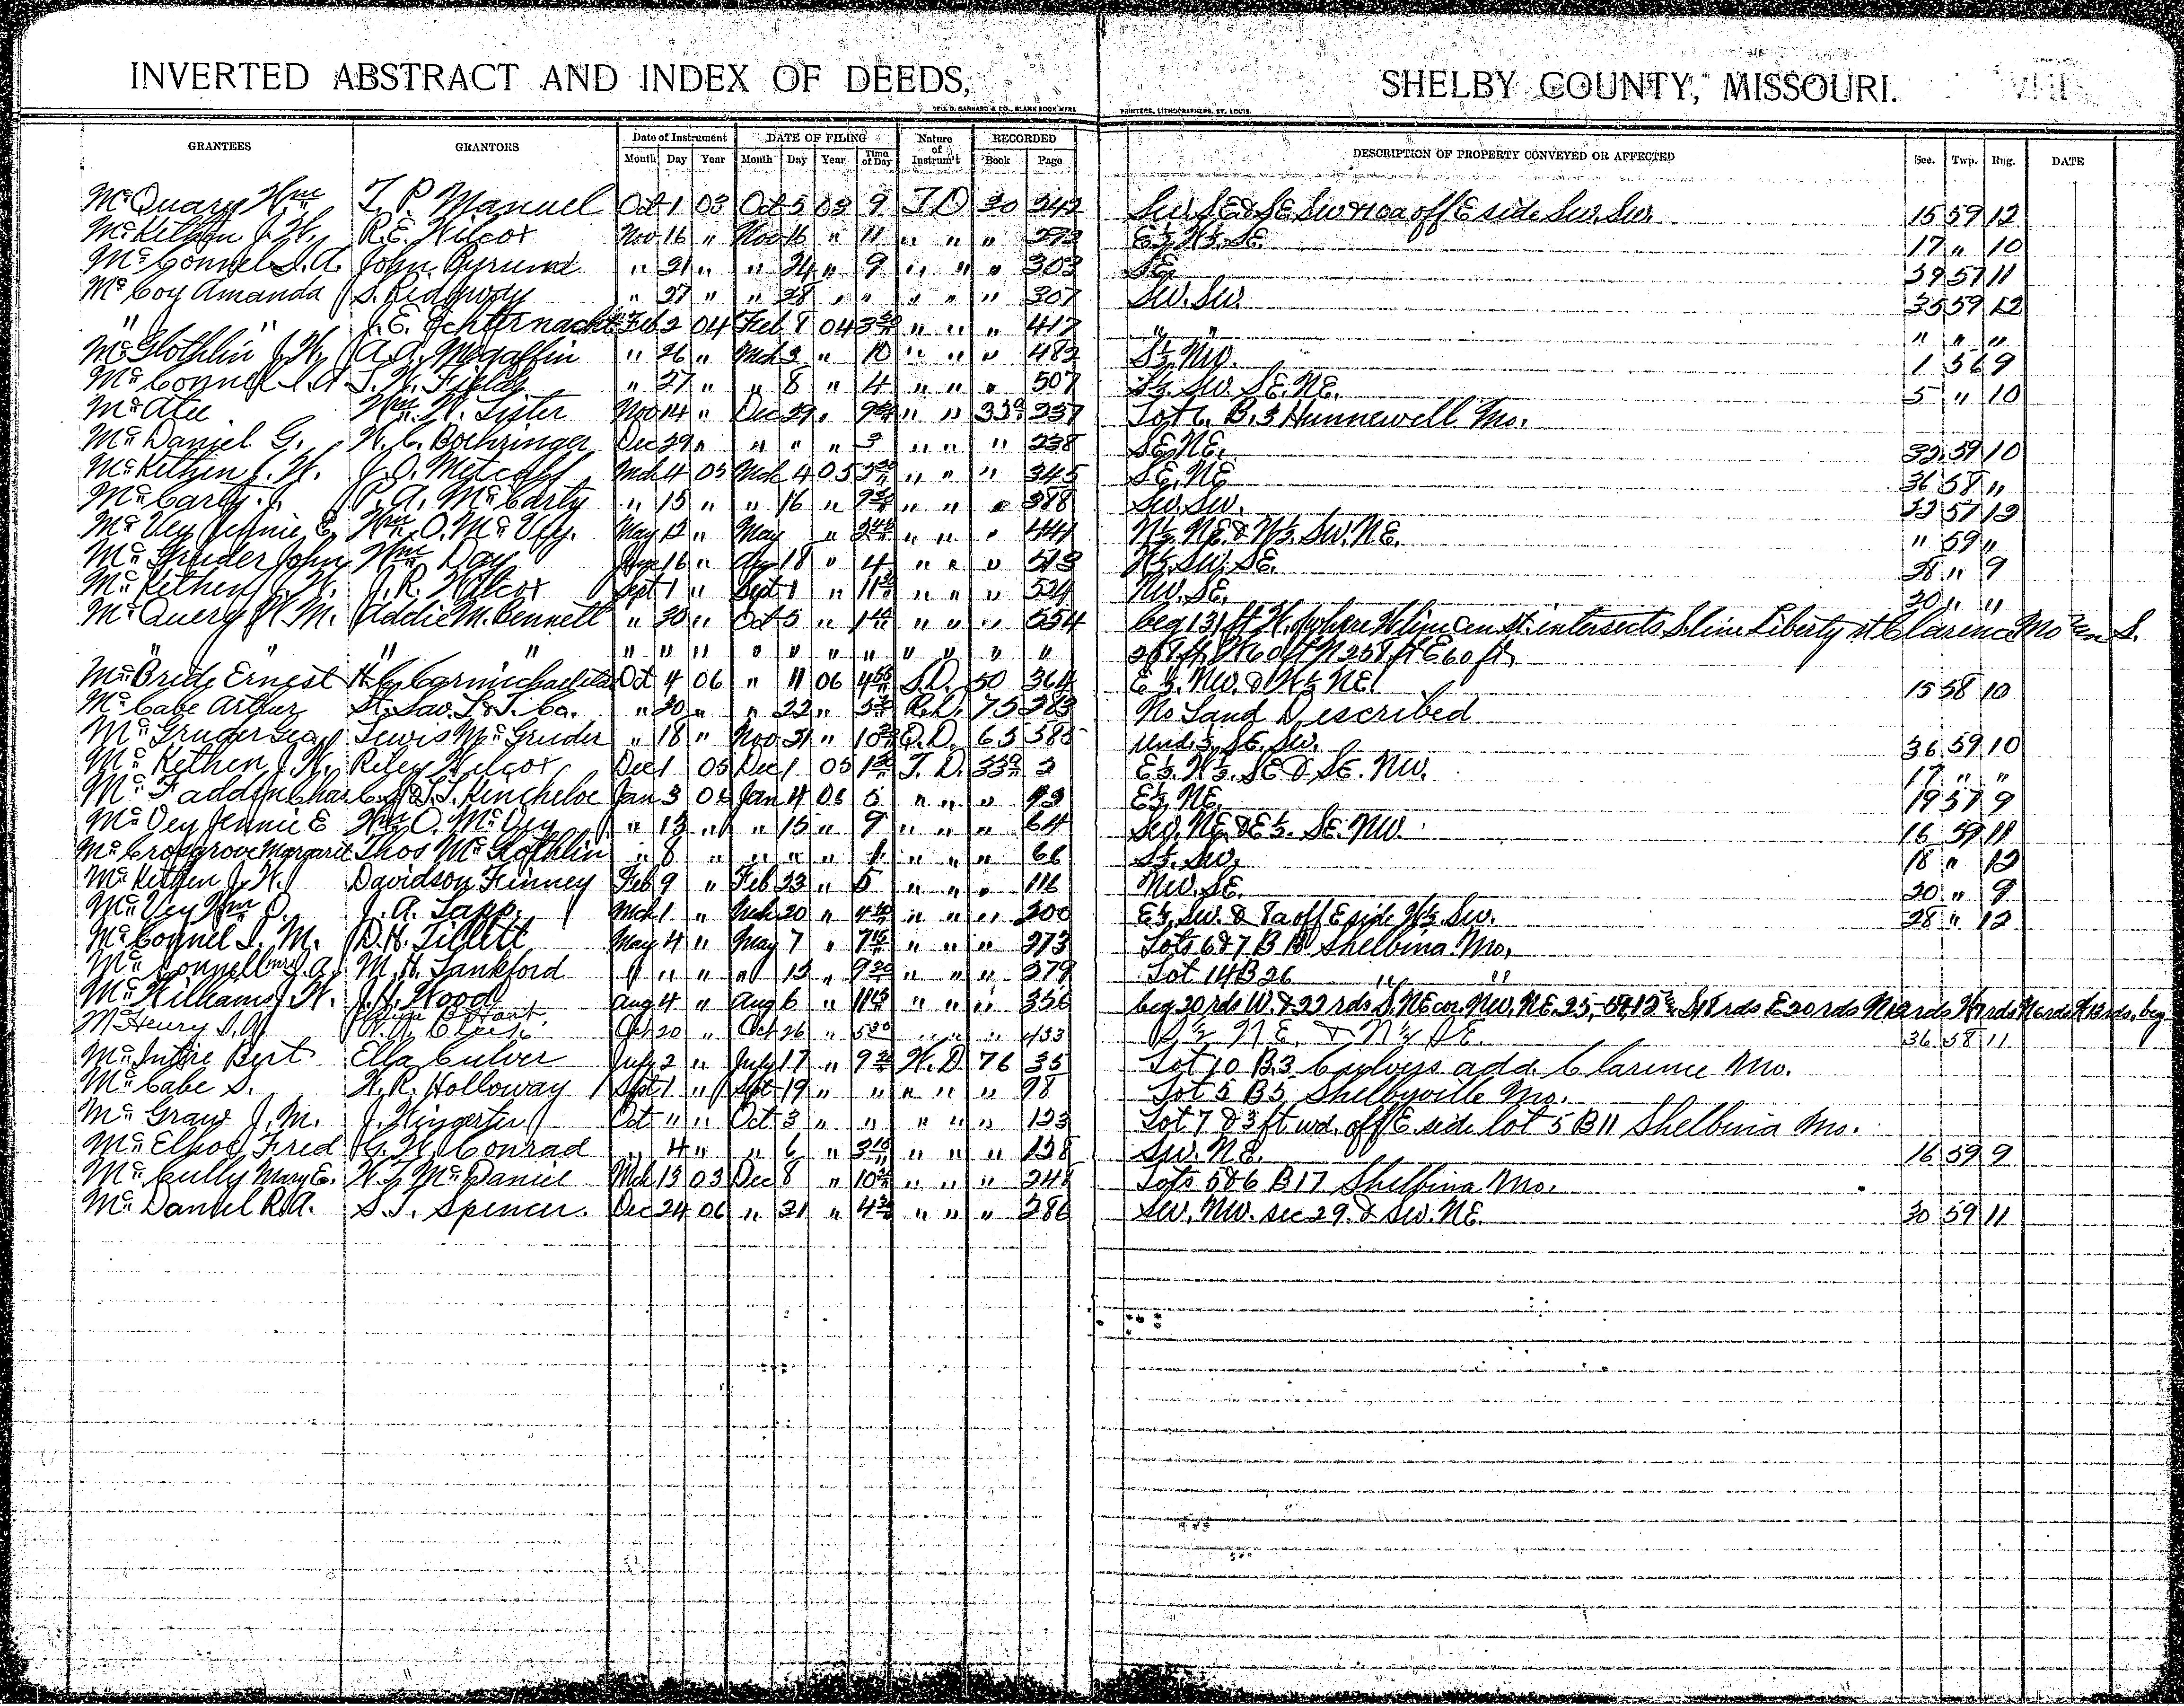 INVERTED ABSTRACT AND INDEX OF DEEDS, SHELBY COUNTY, MISSOURI.
GEO. D. BARNARD & CO., BLANK BOOK MFRS PRINTERS, LITHOGRAPHERS, ST. LOUIS.
GRANTEES GRANTORS Date of Instrument DATE OF FILING Nature of Instrum't RECORDED DESCRIPTION OF PROPERTY CONVEYED OR AFFECTED Sec. Twp. Rng. DATE
Month Day Year Month Day Year Time of Day Book Page
McQuary Wm T. P. Manuel Oct 1 03 Oct 5 03 9 T.D 30 242 Sw. SE & SE Sw & 10a off E side Sw. Sw. 15 59 12
McKethen J.W. R.E. Wilcox Nov 16 " Nov 16 " 11 " " " 272 E½ W½ SE 17 " 10
McConnel S.A. John " 21 " " 24 " 9 " " " 303 SE 57 11
McCoy Amanda S. Ridgway " 27 " " 28 " " " " " 307 Sw. Sw. 35 59 12
" " J.E. Echternacht Feb 2 04 Feb 8 04 " " " 417 " " " " "
McGlothlin J.W. A.A. Megaffin " 26 " Mch 2 " 10 " " " 482 S½ NW. 1 56 9
McConnel S.A. T.W. Fields " 27 " " 8 " 4 " " " 507 S½ Sw. SE. NE. 5 " 10
McAtee Wm. W. Lister Nov 14 " Dec 29 " " " 237 Lot 6 B. 3 Hunnewell Mo.
McDaniel G. W.C. Boehringer Dec 29 " " " " 3 " " " 238 SE NE. 32 59 10
McKethen J.W. J.O. Metcalf Mch 4 05 Mch 4 05 " " " 345 SE. NE 36 58 "
McCarty P.A. McCarty " 15 " " 16 " " " " 388 Sw. Sw. 57 12
McVey Jennie E. Wm. O. McVey. May 12 " May " " " " 444 N½ NE. & N½ Sw. NE. " 59 "
McGruder John Wm Day 16 " Aug 18 " 4 " " " 513 W½ Sw. SE. 28 " 9
McKethen J.W. J.R. Wilcox Sept 1 " Sept 1 " " " " 524 NW. SE. 20 " "
McQuery W.M. Addie M. Bennett " 30 " Oct 5 " " " " 554 beg 131 ft W. of where W line Cen st. intersects S line Liberty st Clarence Mo S.
" " " " " " " " " " " " " " " 268 ft W 60 ft N 268 ft E 60 ft
McBride Ernest H.C. Carmichael etal Oct 4 06 " 11 06 S.D. 50 364 E½. NW. & W½ NE. 15 58 10
McCabe Arthur St. Sav. L. & T. Co. " 20 " " 22 " R.D. 75 283 No Land Described
McGruder Geo. Lewis McGruder " 18 " Nov 21 " Q.D. 63 585 und. SE. Sw. 36 59 10
McKethen J.W. Riley Wilcox Dec 1 05 Dec 1 05 T.D. 2 E½. W½. SE & SE. NW. 17 " "
McFadden Chas C. & T.T. Kincheloe Jan 3 06 Jan 4 06 5 " " " E½ NE. 19 57 9
McVey Jennie E Wm O. McVey " 13 " " 15 " 9 " " " 64 Sw. NE. & E½. SE. NW. 16 59 11
McCrosgrove Margaret Thos McGlothlin " 8 " " " " " " " 66 S½. Sw. 18 " 12
McKethen J.W. Davidson Finney Feb 9 " Feb 23 " 5 " " " 116 NW. SE. 20 " 9
McVey Wm O. J.A. Tapp. Mch 1 " Mch 20 " " " " 200 E½. Sw. & 8a off E side W½ Sw. 28 " 12
McConnel I. M. D.H. Tillett May 4 " May 7 " " " " 273 Lots 6 & 7 B 18 Shelbina Mo.
McConnell Mrs S.A. M.H. Lankford " " " " 15 " 9 30 " " " 279 Lot 14 B 26 " "
McWilliams J.W. J.H. Wood Aug 4 " Aug 6 " " " " 356 beg 20 rds W. & 22 rds S. NE cor. NW. NE. 25,-59,12 S 18 rds E 20 rds
McHenry S.A. Oct 20 " Oct 26 " 5 30 " " " 433 S½ NE. & N½ SE. 36 58 11
McIntire Bert Ella Culver July 2 " July 17 " 9 W.D 76 35 Lot 10 B.3 Culvers add. Clarence Mo.
McCabe S. W.R. Holloway Sept 1 " Sept 19 " " " " " 98 Lot 5 B5 Shelbyville Mo.
McGraw J.M. J. Wingerter Oct " " Oct 3 " " " " " 123 Lot 7 & 3 ft wd. off E. side lot 5 B11 Shelbina Mo.
McElroy Fred G.W. Conrad " 4 " " 6 " " " " 128 Sw. NE. 16 59 9
McCully Mary E. W.T. McDaniel Mch 13 03 Dec 8 " " " " 248 Lots 5 & 6 B17 Shelbina Mo.
McDaniel R.A. S.T. Spencer. Dec 24 06 " 31 " " " " 286 Sw. NW. sec 29. & Sw. NE. 30 59 11